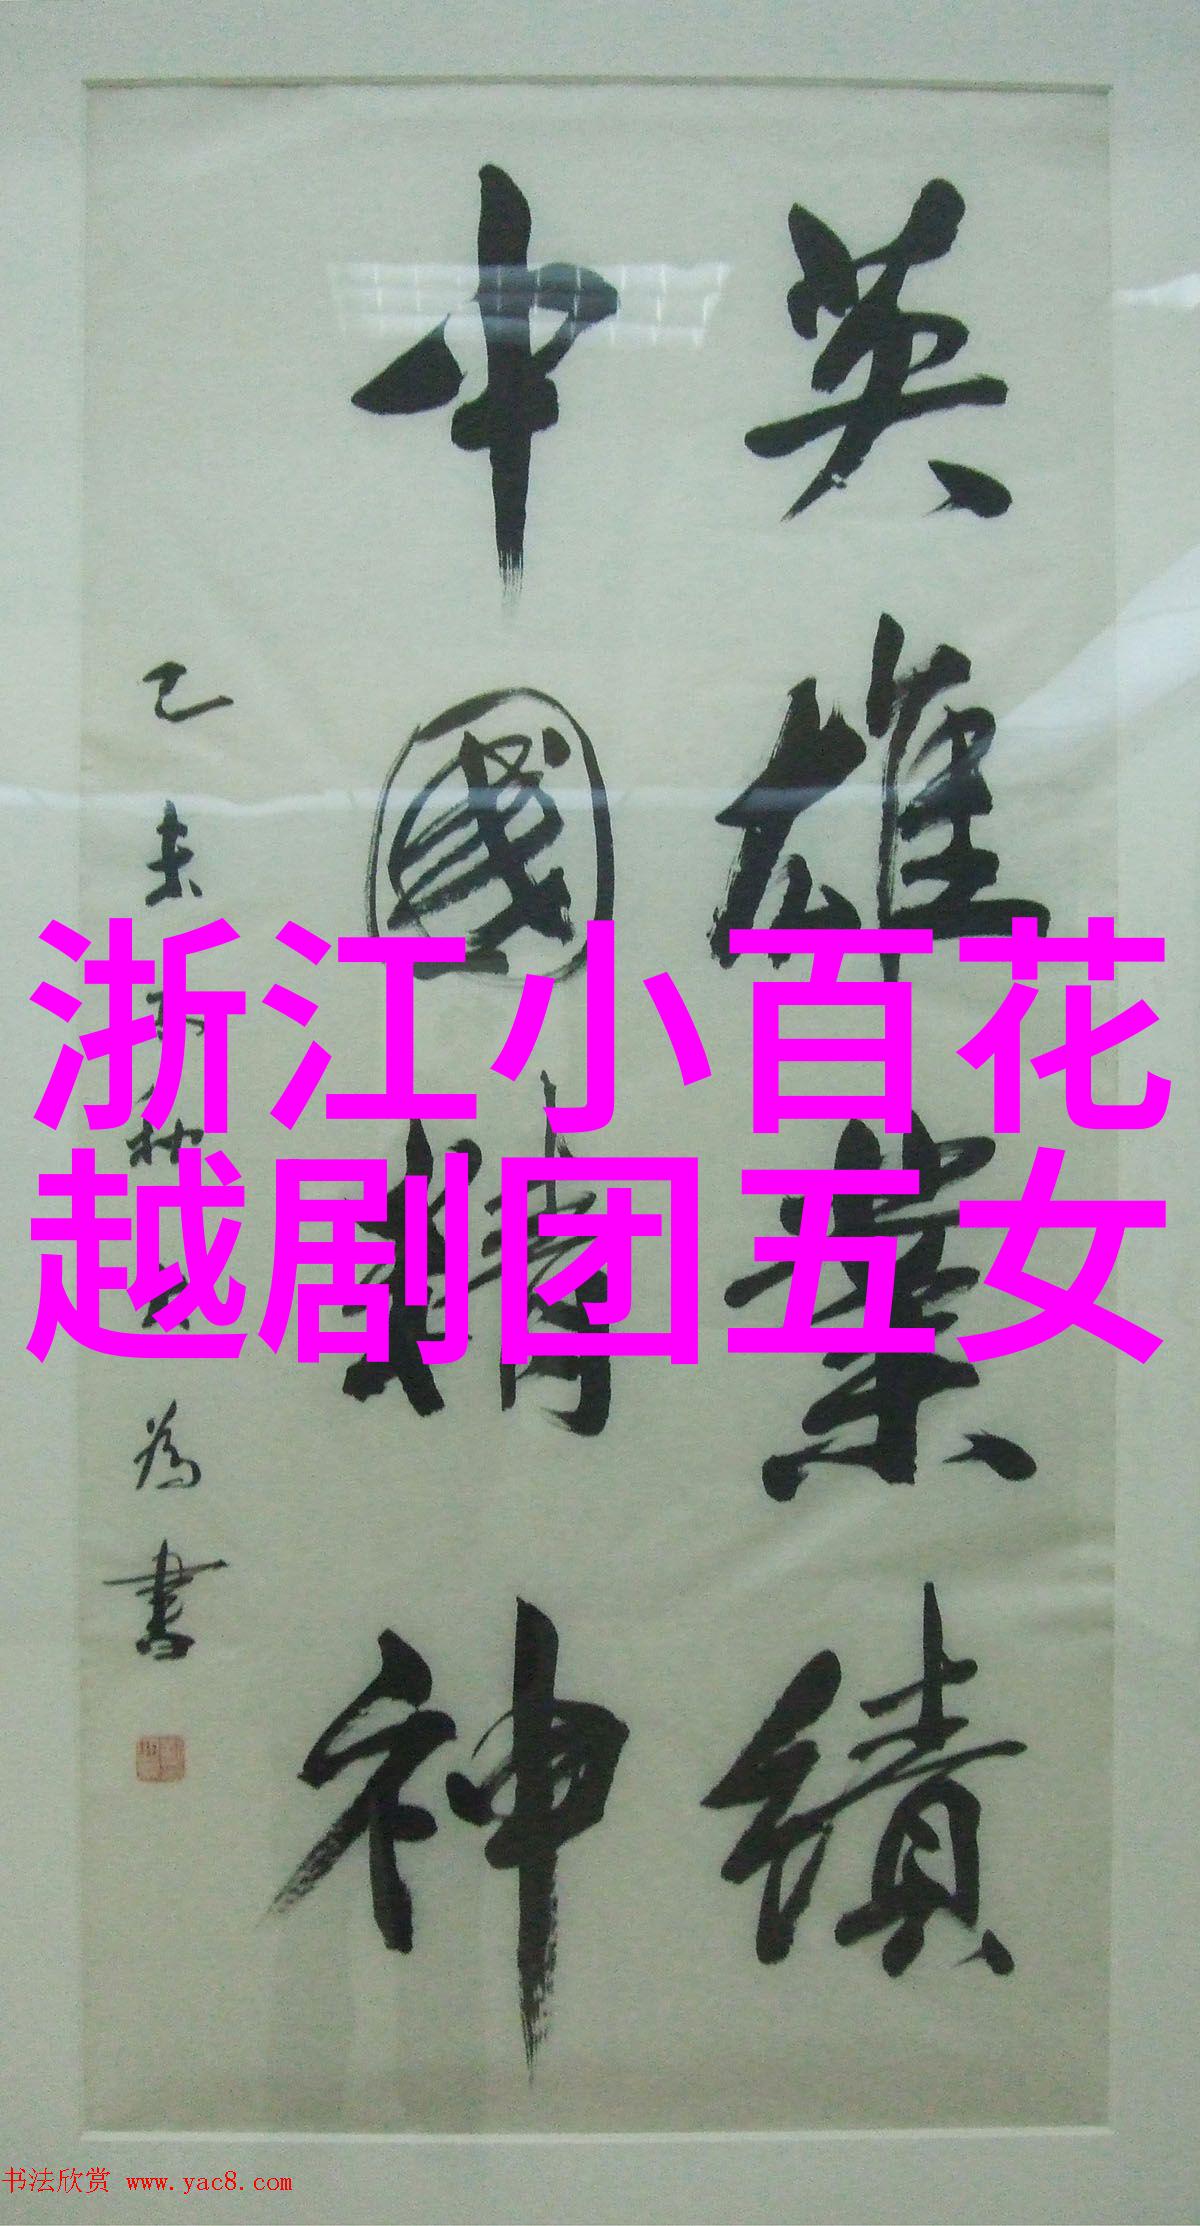 英雄業績
中國精神
乙未
秋
為書
浙江小百花
越剧团五女
书法欣赏 www.yac8.com